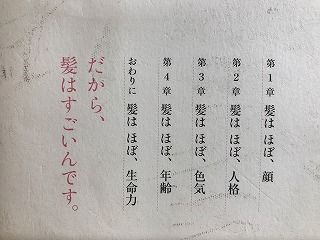 第1章 髪は ほぼ、顔
第2章 髪は ほぼ、人格
第3章 髪は ほぼ、色気
第4章 髪は ほぼ、年齢
おわりに 髪は ほぼ、生命力
だから、
髪はすごいんです。